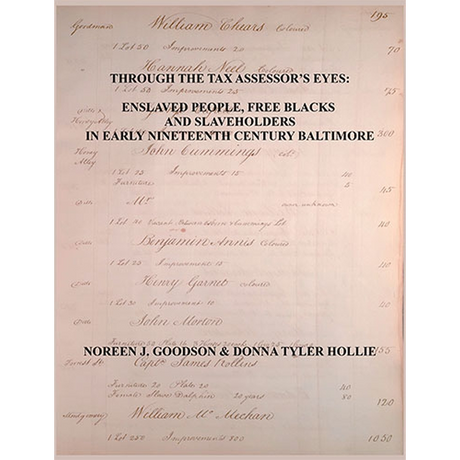 195
Goodman William Chears Coloured
1 Lot 50 Improvements 20 70
Hannah Neel Coloured
THROUGH THE TAX ASSESSOR'S EYES:
1 Lot 50 Improvements 25
ENSLAVED PEOPLE, FREE BLACKS
AND SLAVEHOLDERS
IN EARLY NINETEENTH CENTURY BALTIMORE 300
Henry Alley John Cummings
1 Lot 25 Improvements 15 40
Furniture 5 45
Mr. owner unknown
1 Lot 40
Benjamin Annis Coloured
1 Lot 25 Improvements
Henry Garnet coloured
1 Lot 30 Improvements 10
John Morton
NOREEN J. GOODSON & DONNA TYLER HOLLIE 155
Forrest St. Captn James Rollins
Furniture 20 Plate 20 40
Female Slave Dolphin 20 years 80 120
Montgomery William Mc Mechan
1 Lot 250 Improvements 800 1050